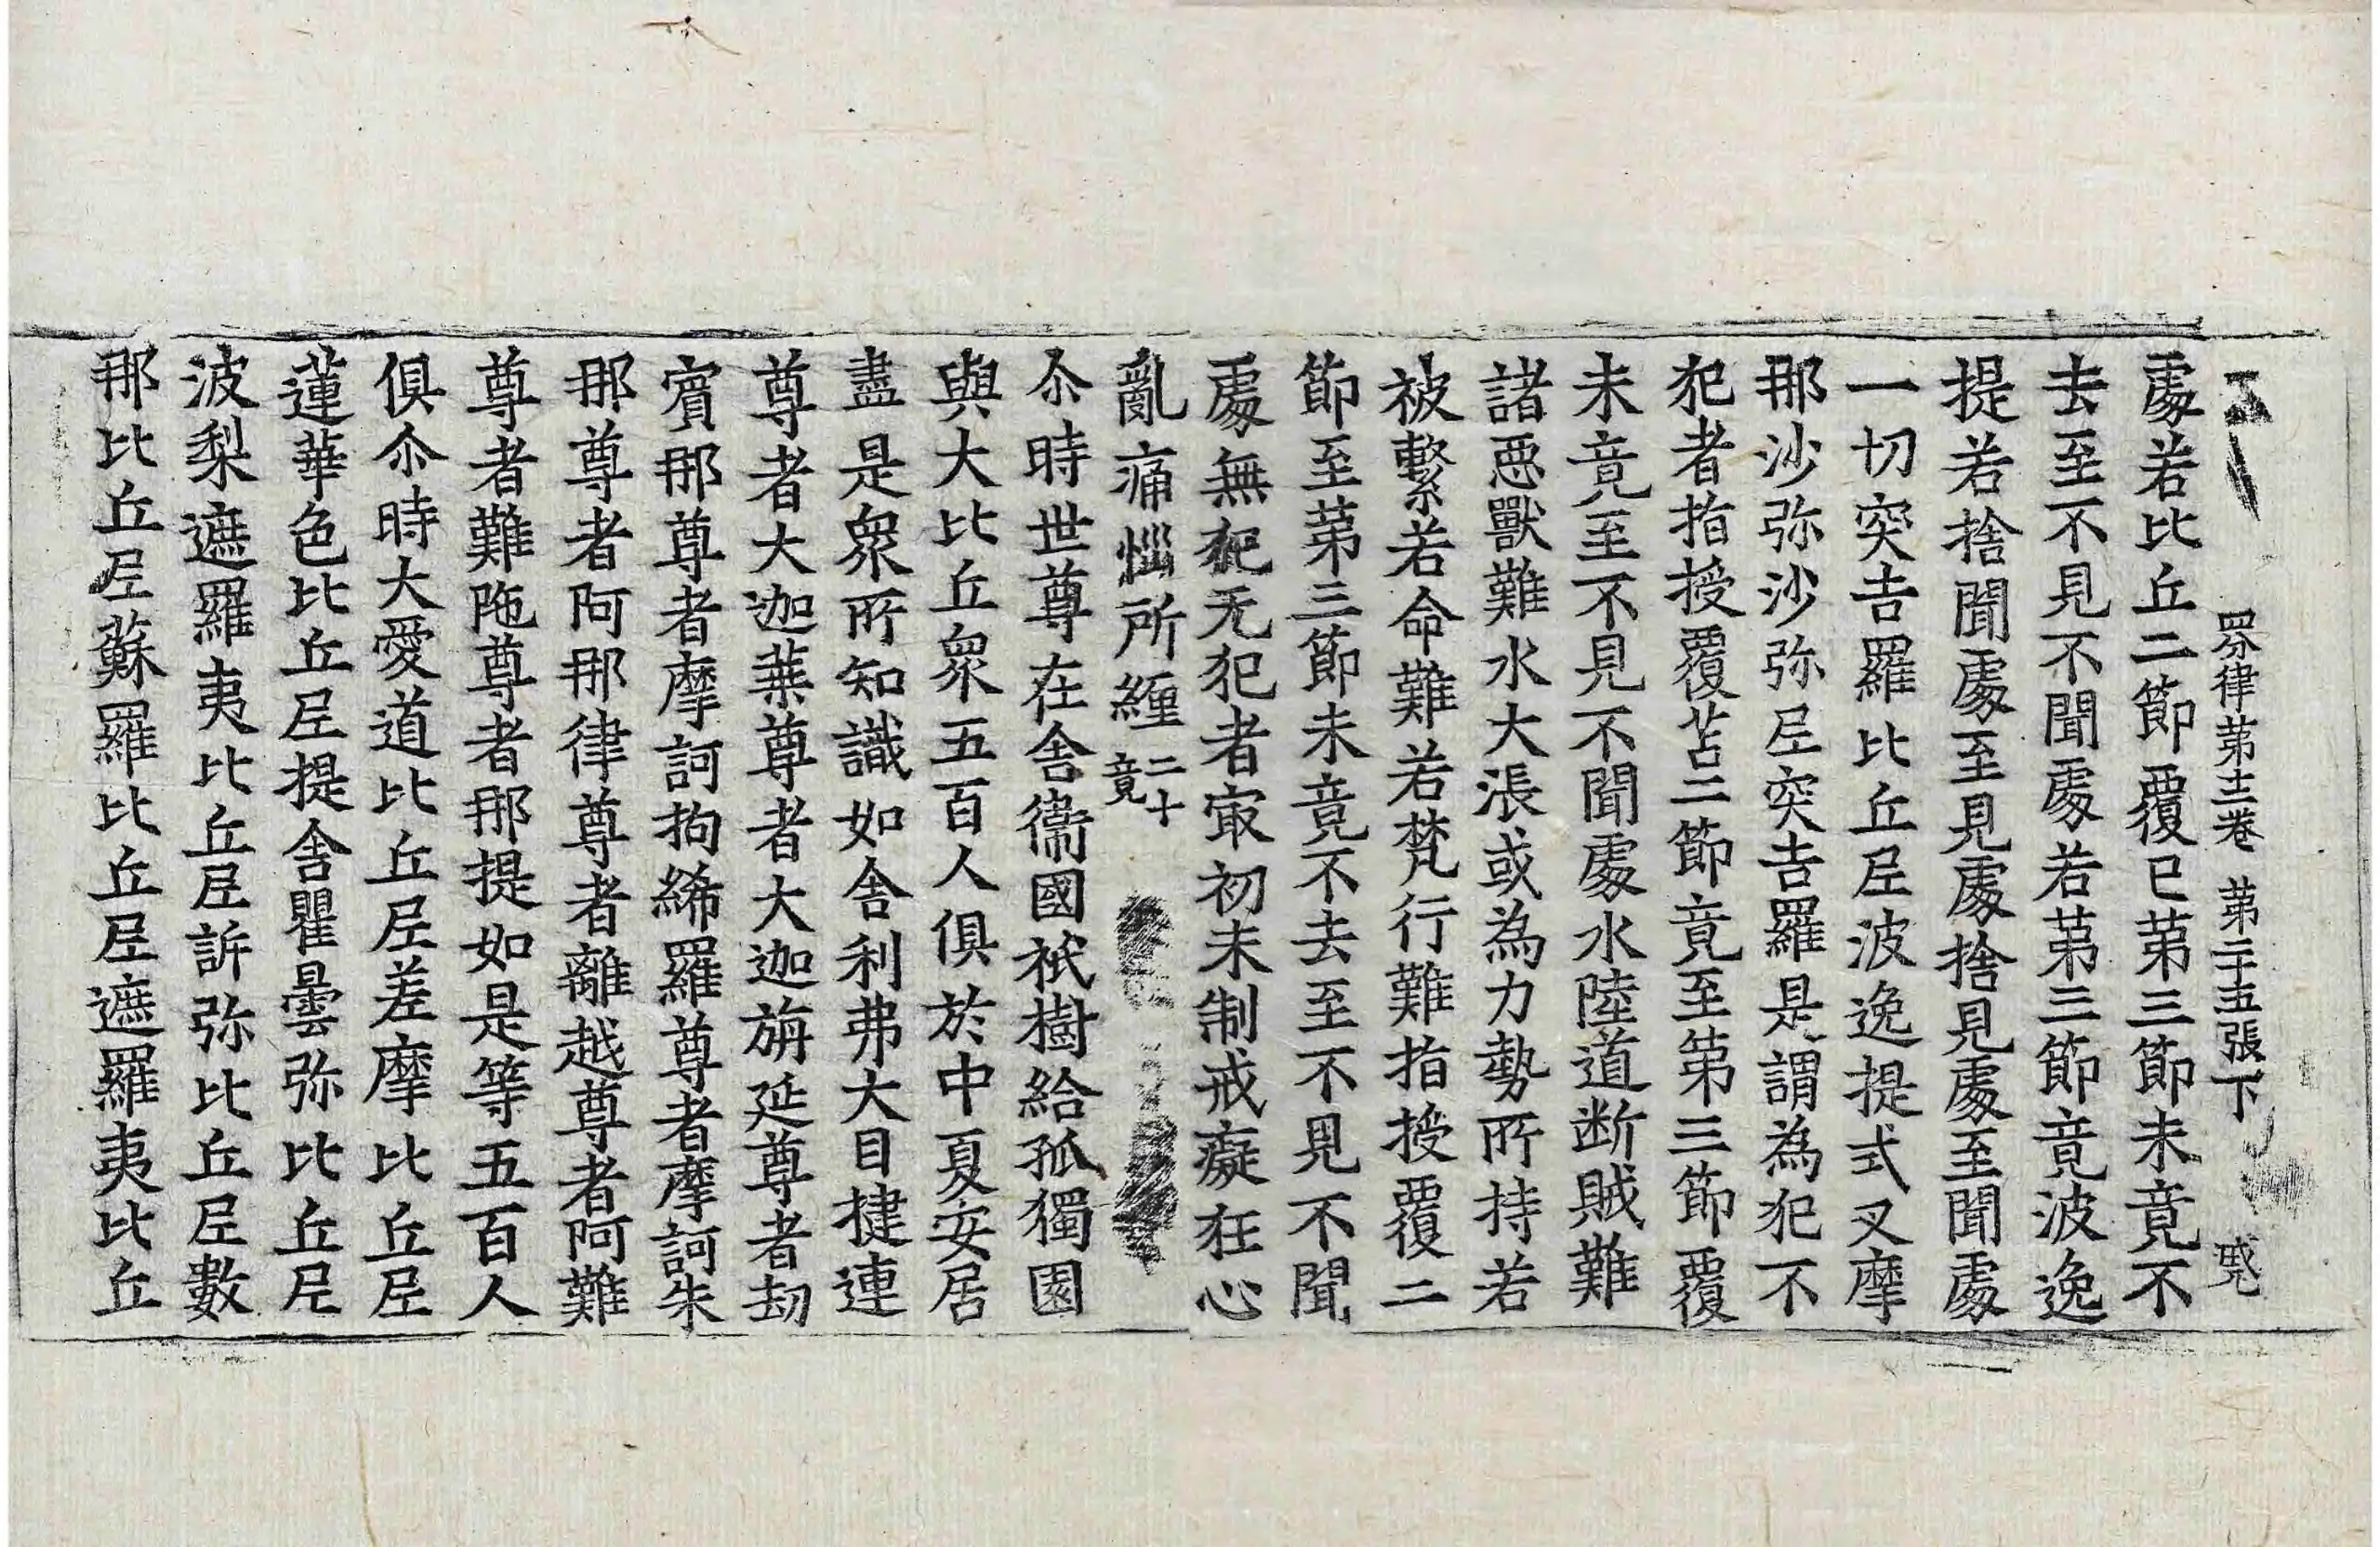 四分律第十二卷　第二十五張下
處若比丘二節覆已第三節未竟不
去至不見不聞處若第三節竟波逸
提若捨聞處至見處捨見處至聞處
一切突吉羅比丘尼波逸提式叉摩
那沙弥沙弥尼突吉羅是謂為犯不
犯者指授覆苫二節竟至第三節覆
未竟至不見不聞處水陸道断賊難
諸惡獸難水大漲或為力勢所持若
被繫若命難若梵行難指授覆二
節至第三節未竟不去至不見不聞
處無犯无犯者㝡初未制戒癡狂心
亂痛惱所纏二十竟
尒時世尊在舍衞國祇樹給孤獨園
與大比丘衆五百人俱於中夏安居
盡是衆所知識如舍利弗大目揵連
尊者大迦葉尊者大迦旃延尊者劫
賓那尊者摩訶拘絺羅尊者摩訶朱
那尊者阿那律尊者離越尊者阿難
尊者難陁尊者那提如是等五百人
俱尒時大愛道比丘尼差摩比丘尼
蓮華色比丘尼提舍瞿曇弥比丘尼
波梨遮羅夷比丘尼訴弥比丘尼數
那比丘尼蘇羅比丘尼遮羅夷比丘